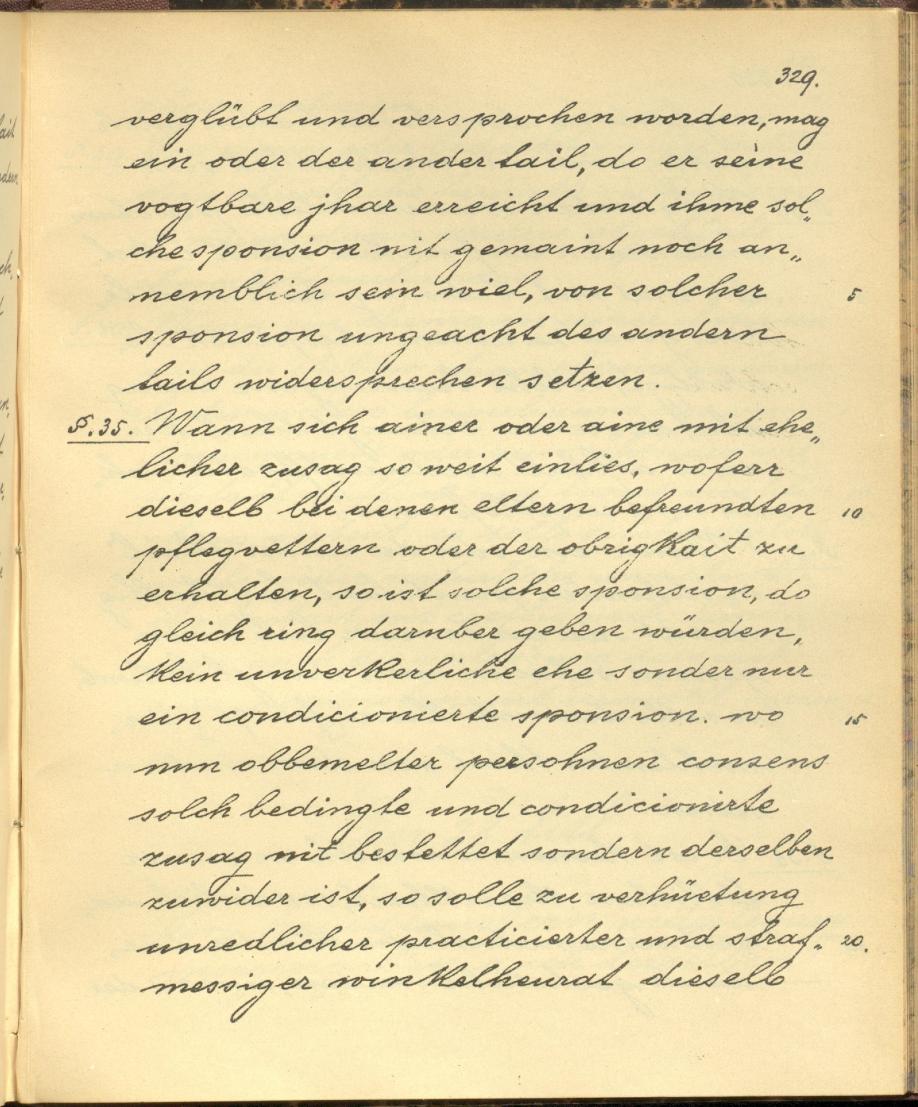 329.
verglübt und versprochen worden, mag
ein oder der ander tail, do er seine
vogtbare jhar erreicht und ihme sol„
che sponsion nit gemaint noch an„
nemblich sein wiel, von solcher 5
sponsion ungeacht des andern
tails widersprechen setzen.
§. 35. Wann sich ainer oder aine mit ehe„
licher zusag so weit einlies, woferr
dieselb bei denen eltern befreundten 10
pflegvettern oder der obrigkait zu
erhalten, so ist solche sponsion, do
gleich ring darnber geben würden,
kein unverkerliche ehe sonder nur
ein condicionierte sponsion. wo 15
nun obbemelter persohnen consens
solch bedingte und condicionirte
zusag nit bestettet sondern derselben
zuwider ist, so solle zu verhüetung
unredlicher practicierter und straf„ 20.
messiger winkelheurat dieselb